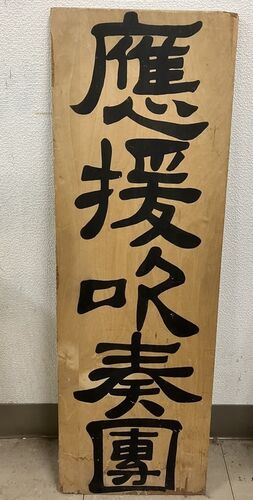 應援吹奏團